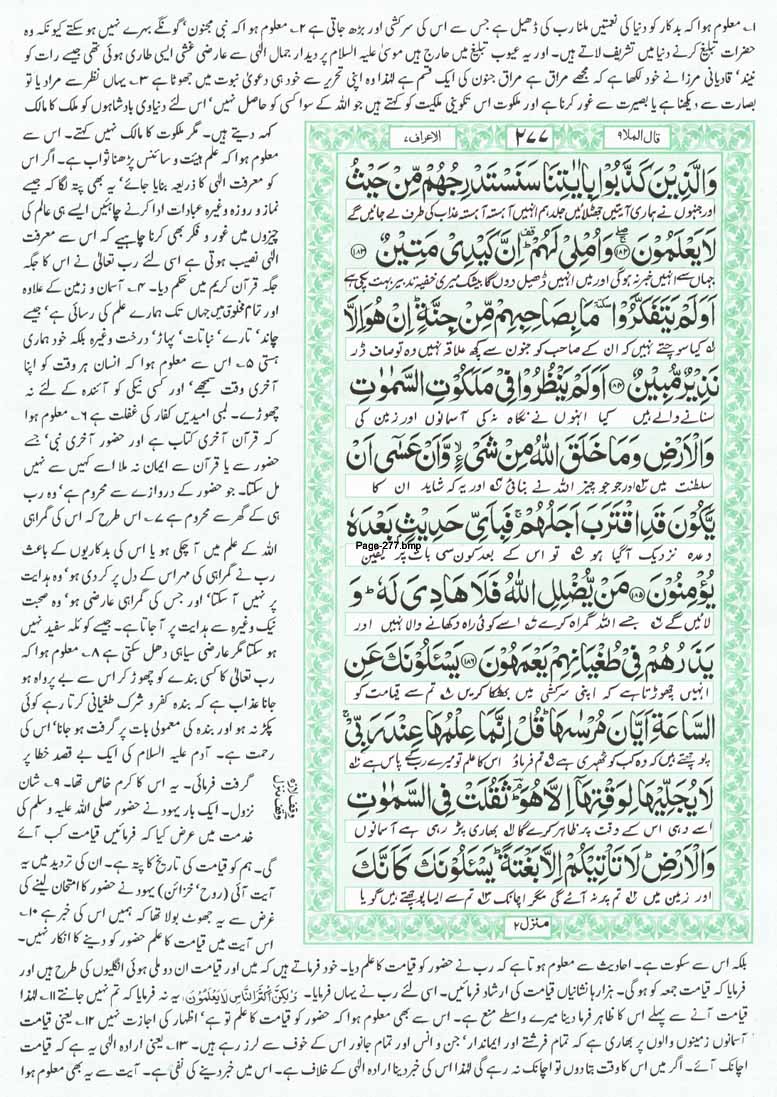 ۱۔ معلوم ہوا کہ بدکار کو دنیا کی نعمتیں ملنا رب کی ڈھیل ہے جس سے اس کی سرکشی اور بڑھ جاتی ہے ۲۔ معلوم ہوا کہ نبی مجنون، گونگے بہرے نہیں ہو سکتے کیونکہ وہ
حضرات تبلیغ کرنے دنیا میں تشریف لاتے ہیں۔ اور یہ عیوب تبلیغ میں حارج ہیں موسیٰ علیہ السلام پر دیدار جمال الٰہی سے عارضی غشی ایسی طاری ہوئی تھی جیسے رات کو
نیند، قادیانی مرزا نے خود لکھا ہے کہ مجھے مراق ہے مراق جنون کی ایک قسم ہے لہٰذا وہ اپنی تحریر سے خود ہی دعویٰ نبوت میں جھوٹا ہے ۳۔ یہاں نظر سے مراد یا تو
بصارت سے دیکھنا ہے یا بصیرت سے غور کرنا ہے اور ملکوت اس تکوینی ملکیت کو کہتے ہیں جو اللہ کے سوا کسی کو حاصل نہیں، اس لئے دنیاوی بادشاہوں کو ملک کا مالک
قال الملا۹
۲۷۷
الاعراف۷
وَالَّذِیْنَ کَذَّبُوْا بِاٰیٰتِنَا سَنَسْتَدْرِجُهُمْ مِّنْ حَیْثُ
اور جنہوں نے ہماری آیتیں جھٹلائیں جلد ہم انہیں آہستہ آہستہ عذاب کی طرف لے جائیں گے
لَا یَعْلَمُوْنَ ﴿۱۸۲﴾ وَاُمْلِیْ لَهُمْ ؕ اِنَّ کَیْدِیْ مَتِیْنٌ ﴿۱۸۳﴾
جہاں سے انہیں خبر نہ ہو گی اور میں انہیں ڈھیل دوں گا بیشک میری خفیہ تدبیر بہت پکی ہے
اَوَلَمْ یَتَفَکَّرُوْا ٚ مَا بِصَاحِبِهِمْ مِّنْ جِنَّةٍ ؕ اِنْ هُوَ اِلَّا
کیا سوچتے نہیں کہ ان کے صاحب کو جنون سے کچھ علاقہ نہیں وہ تو صاف ڈر
نَذِیْرٌ مُّبِیْنٌ ﴿۱۸۴﴾ اَوَلَمْ یَنْظُرُوْا فِیْ مَلَکُوْتِ السَّمٰوٰتِ
سنانے والے ہیں کیا انہوں نے نگاہ نہ کی آسمانوں اور زمین کی
وَالْاَرْضِ وَمَا خَلَقَ اللّٰهُ مِنْ شَیْءٍ ۙ وَّاَنْ عَسٰۤی اَنْ
سلطنت میں اور جو جو چیز اللہ نے بنائی اور یہ کہ شاید ان کا
یَّکُوْنَ قَدِ اقْتَرَبَ اَجَلُهُمْ ۚ فَبِاَیِّ حَدِیْثٍۭ بَعْدَهٗ
وعدہ نزدیک آگیا ہو تو اس کے بعد کون سی بات پر یقین
Page-277.bmp
یُؤْمِنُوْنَ ﴿۱۸۵﴾ مَنْ یُّضْلِلِ اللّٰهُ فَلَا هَادِیَ لَهٗ ؕ وَ
لائیں گے جسے اللہ گمراہ کرے اسے کوئی راہ دکھانے والا نہیں اور
یَذَرُهُمْ فِیْ طُغْیَانِهِمْ یَعْمَهُوْنَ ﴿۱۸۶﴾ یَسْـَٔلُوْنَکَ عَنِ
انہیں چھوڑتا ہے کہ اپنی سرکشی میں بھٹکا کریں تم سے قیامت کو
السَّاعَةِ اَیَّانَ مُرْسٰىهَا ؕ قُلْ اِنَّمَا عِلْمُهَا عِنْدَ رَبِّیْ ۚ
پوچھتے ہیں کہ وہ کب کو ٹھہری ہے تم فرماؤ اس کا علم تو میرے رب کے پاس ہے
لَا یُجَلِّیْهَا لِوَقْتِهَاۤ اِلَّا هُوَ ؔؕ ثَقُلَتْ فِی السَّمٰوٰتِ
اسے وہی اس کے وقت پر ظاہر کرے گا بھاری پڑ رہی ہے آسمانوں
وَالْاَرْضِ ؕ لَا تَاْتِیْکُمْ اِلَّا بَغْتَةً ؕ یَسْـَٔلُوْنَکَ کَاَنَّکَ
اور زمین میں تم پر نہ آئے گی مگر اچانک تم سے ایسا پوچھتے ہیں گویا
منزل۲
کہہ دیتے ہیں۔ مگر ملکوت کا مالک نہیں کہتے۔ اس سے
معلوم ہوا کہ علم ہیئت و سائنس پڑھنا ثواب ہے۔ اگر اس
کو معرفت الٰہی کا ذریعہ بنایا جائے، یہ بھی پتہ لگا کہ جیسے
نماز و روزہ وغیرہ عبادات ادا کرنے چاہئیں ایسے ہی عالم کی
چیزوں میں غور و فکر بھی کرنا چاہیے کہ اس سے معرفت
الٰہی نصیب ہوتی ہے اسی لئے رب تعالیٰ نے اس کا جگہ
جگہ قرآن کریم میں حکم دیا۔ ۴۔ آسمان و زمین کے علاوہ
اور تمام مخلوق میں جہاں تک ہمارے علم کی رسائی ہے، جیسے
چاند، تارے، نباتات، پہاڑ، درخت وغیرہ بلکہ خود ہماری
ہستی ۵۔ اس سے معلوم ہوا کہ انسان ہر وقت کو اپنا
آخری وقت سمجھے، اور کسی نیکی کو آئندہ کے لئے نہ
چھوڑے۔ لمبی امیدیں کفار کی غفلت ہے ۶۔ معلوم ہوا
کہ قرآن آخری کتاب ہے اور حضور آخری نبی، جسے
حضور سے یا قرآن سے ایمان نہ ملا اسے کہیں سے نہیں
مل سکتا۔ جو حضور کے دروازے سے محروم ہے، وہ رب
ہی کے گھر سے محروم ہے ۷۔ اس طرح کہ اس کی گمراہی
اللہ کے علم میں آ چکی ہو یا اس کی بدکاریوں کے باعث
رب نے گمراہی کی مہر اس کے دل پر کر دی ہو، وہ ہدایت
پر نہیں آ سکتا، اور جس کی گمراہی عارضی ہو، وہ صحبت
نیک وغیرہ سے ہدایت پر آ جاتا ہے۔ جیسے کوئلہ سفید نہیں
ہو سکتا مگر عارضی سیاہی دھل سکتی ہے ۸۔ معلوم ہوا کہ
رب تعالیٰ کا کسی بندے کو چھوڑ کر اس سے بے پرواہ ہو
جانا عذاب ہے کہ بندہ کفر و شرک طغیانی کرتا رہے کوئی
پکڑ نہ ہو اور بندہ کی معمولی بات پر گرفت ہو جانا، اس کی
رحمت ہے۔ آدم علیہ السلام کی ایک بے قصد خطا پر
گرفت فرمائی۔ یہ اس کا کرم خاص تھا۔ ۹۔ شان
نزول۔ ایک بار یہود نے حضور صلی اللہ علیہ وسلم کی
خدمت میں عرض کیا کہ فرمائیں قیامت کب آئے
گی۔ ہم کو قیامت کی تاریخ کا پتہ ہے۔ ان کی تردید میں یہ
آیت آئی (روح، خزائن) یہود نے حضور کا امتحان لینے کی
غرض سے یہ جھوٹ بولا تھا کہ ہمیں اس کی خبر ہے ۱۰۔
اس آیت میں قیامت کا علم حضور کو دینے کا انکار نہیں۔
بلکہ اس سے سکوت ہے۔ احادیث سے معلوم ہوتا ہے کہ رب نے حضور کو قیامت کا علم دیا۔ خود فرماتے ہیں کہ میں اور قیامت ان دو ملی ہوئی انگلیوں کی طرح ہیں اور
فرمایا کہ قیامت جمعہ کو ہو گی۔ ہزارہا نشانیاں قیامت کی ارشاد فرمائیں۔ اسی لئے رب نے یہاں فرمایا۔ وَلٰکِنَّ اَکْثَرَ النَّاسِ لَا یَعْلَمُوْنَ یہ نہ فرمایا کہ تم نہیں جانتے ۱۱۔ لہٰذا
قیامت آنے سے پہلے اس کا ظاہر فرما دینا میرے واسطے منع ہے۔ اس سے بھی معلوم ہوا کہ حضور کو قیامت کا علم تو ہے، اظہار کی اجازت نہیں ۱۲۔ یعنی قیامت
آسمانوں زمینوں والوں پر بھاری ہے کہ تمام فرشتے اور ایماندار، جن و انس اور تمام جانور اس کے خوف سے لرز رہے ہیں۔ ۱۳۔ یعنی ارادہ الٰہی یہ ہے کہ قیامت
اچانک آئے۔ اگر میں اس کا وقت بتا دوں تو اچانک نہ رہے گی لہٰذا اس کی خبر دینا ارادہ الٰہی کے خلاف ہے۔ اس میں خبر دینے کی نفی ہے۔ آیت سے یہ بھی معلوم ہوا